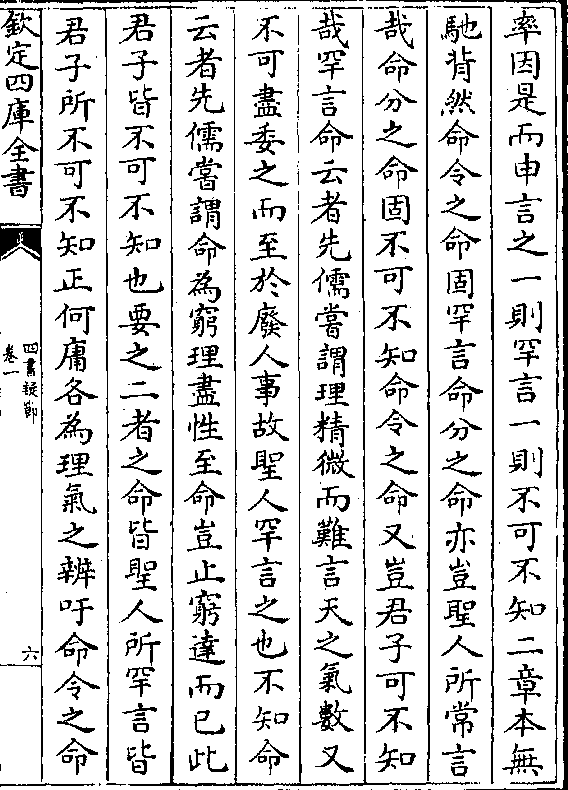 率因是而申言之一則罕言一則不可不知二章本無
馳背然命令之命固罕言命分之命亦豈聖人所常言
哉命分之命固不可不知命令之命又豈君子可不知
哉罕言命云者先儒嘗謂理精微而難言天之氣數又
不可盡委之而至於廢人事故聖人罕言之也不知命
云者先儒嘗謂命為窮理盡性至命豈止窮達而已此
君子皆不可不知也要之二者之命皆聖人所罕言皆
君子所不可不知正何庸各為理氣之辨吁命令之命
欽定四庫全書
四書疑節
卷一
六